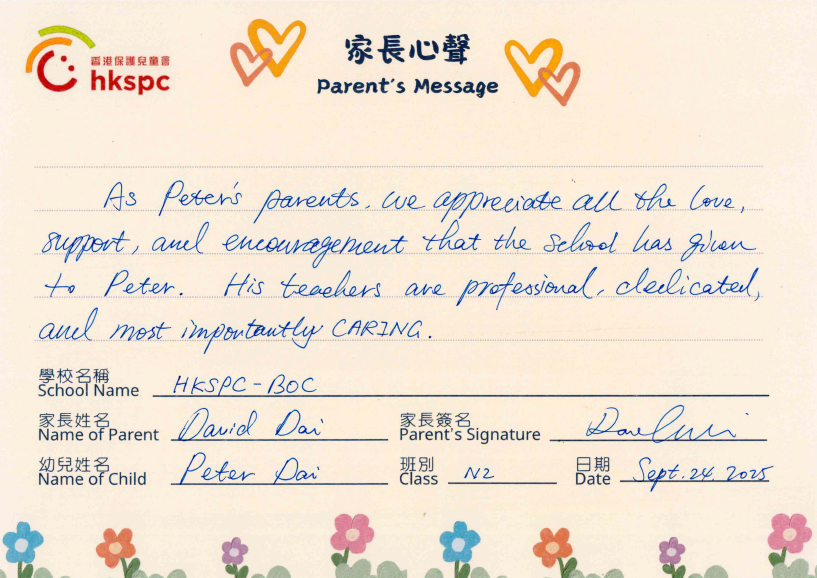 香港保護兒童會
hkspc
家長心聲
Parent's Message
As Peter's parents, we appreciate all the love,
support, and encouragement that the school has given
to Peter. His teachers are professional, dedicated,
and most importantly CARING.
學校名稱
School Name HKSPC-BOC
家長姓名 家長簽名
Name of Parent David Dai Parent's Signature
幼兒姓名 班別 日期
Name of Child Peter Dai Class N2 Date Sept. 24. 2025